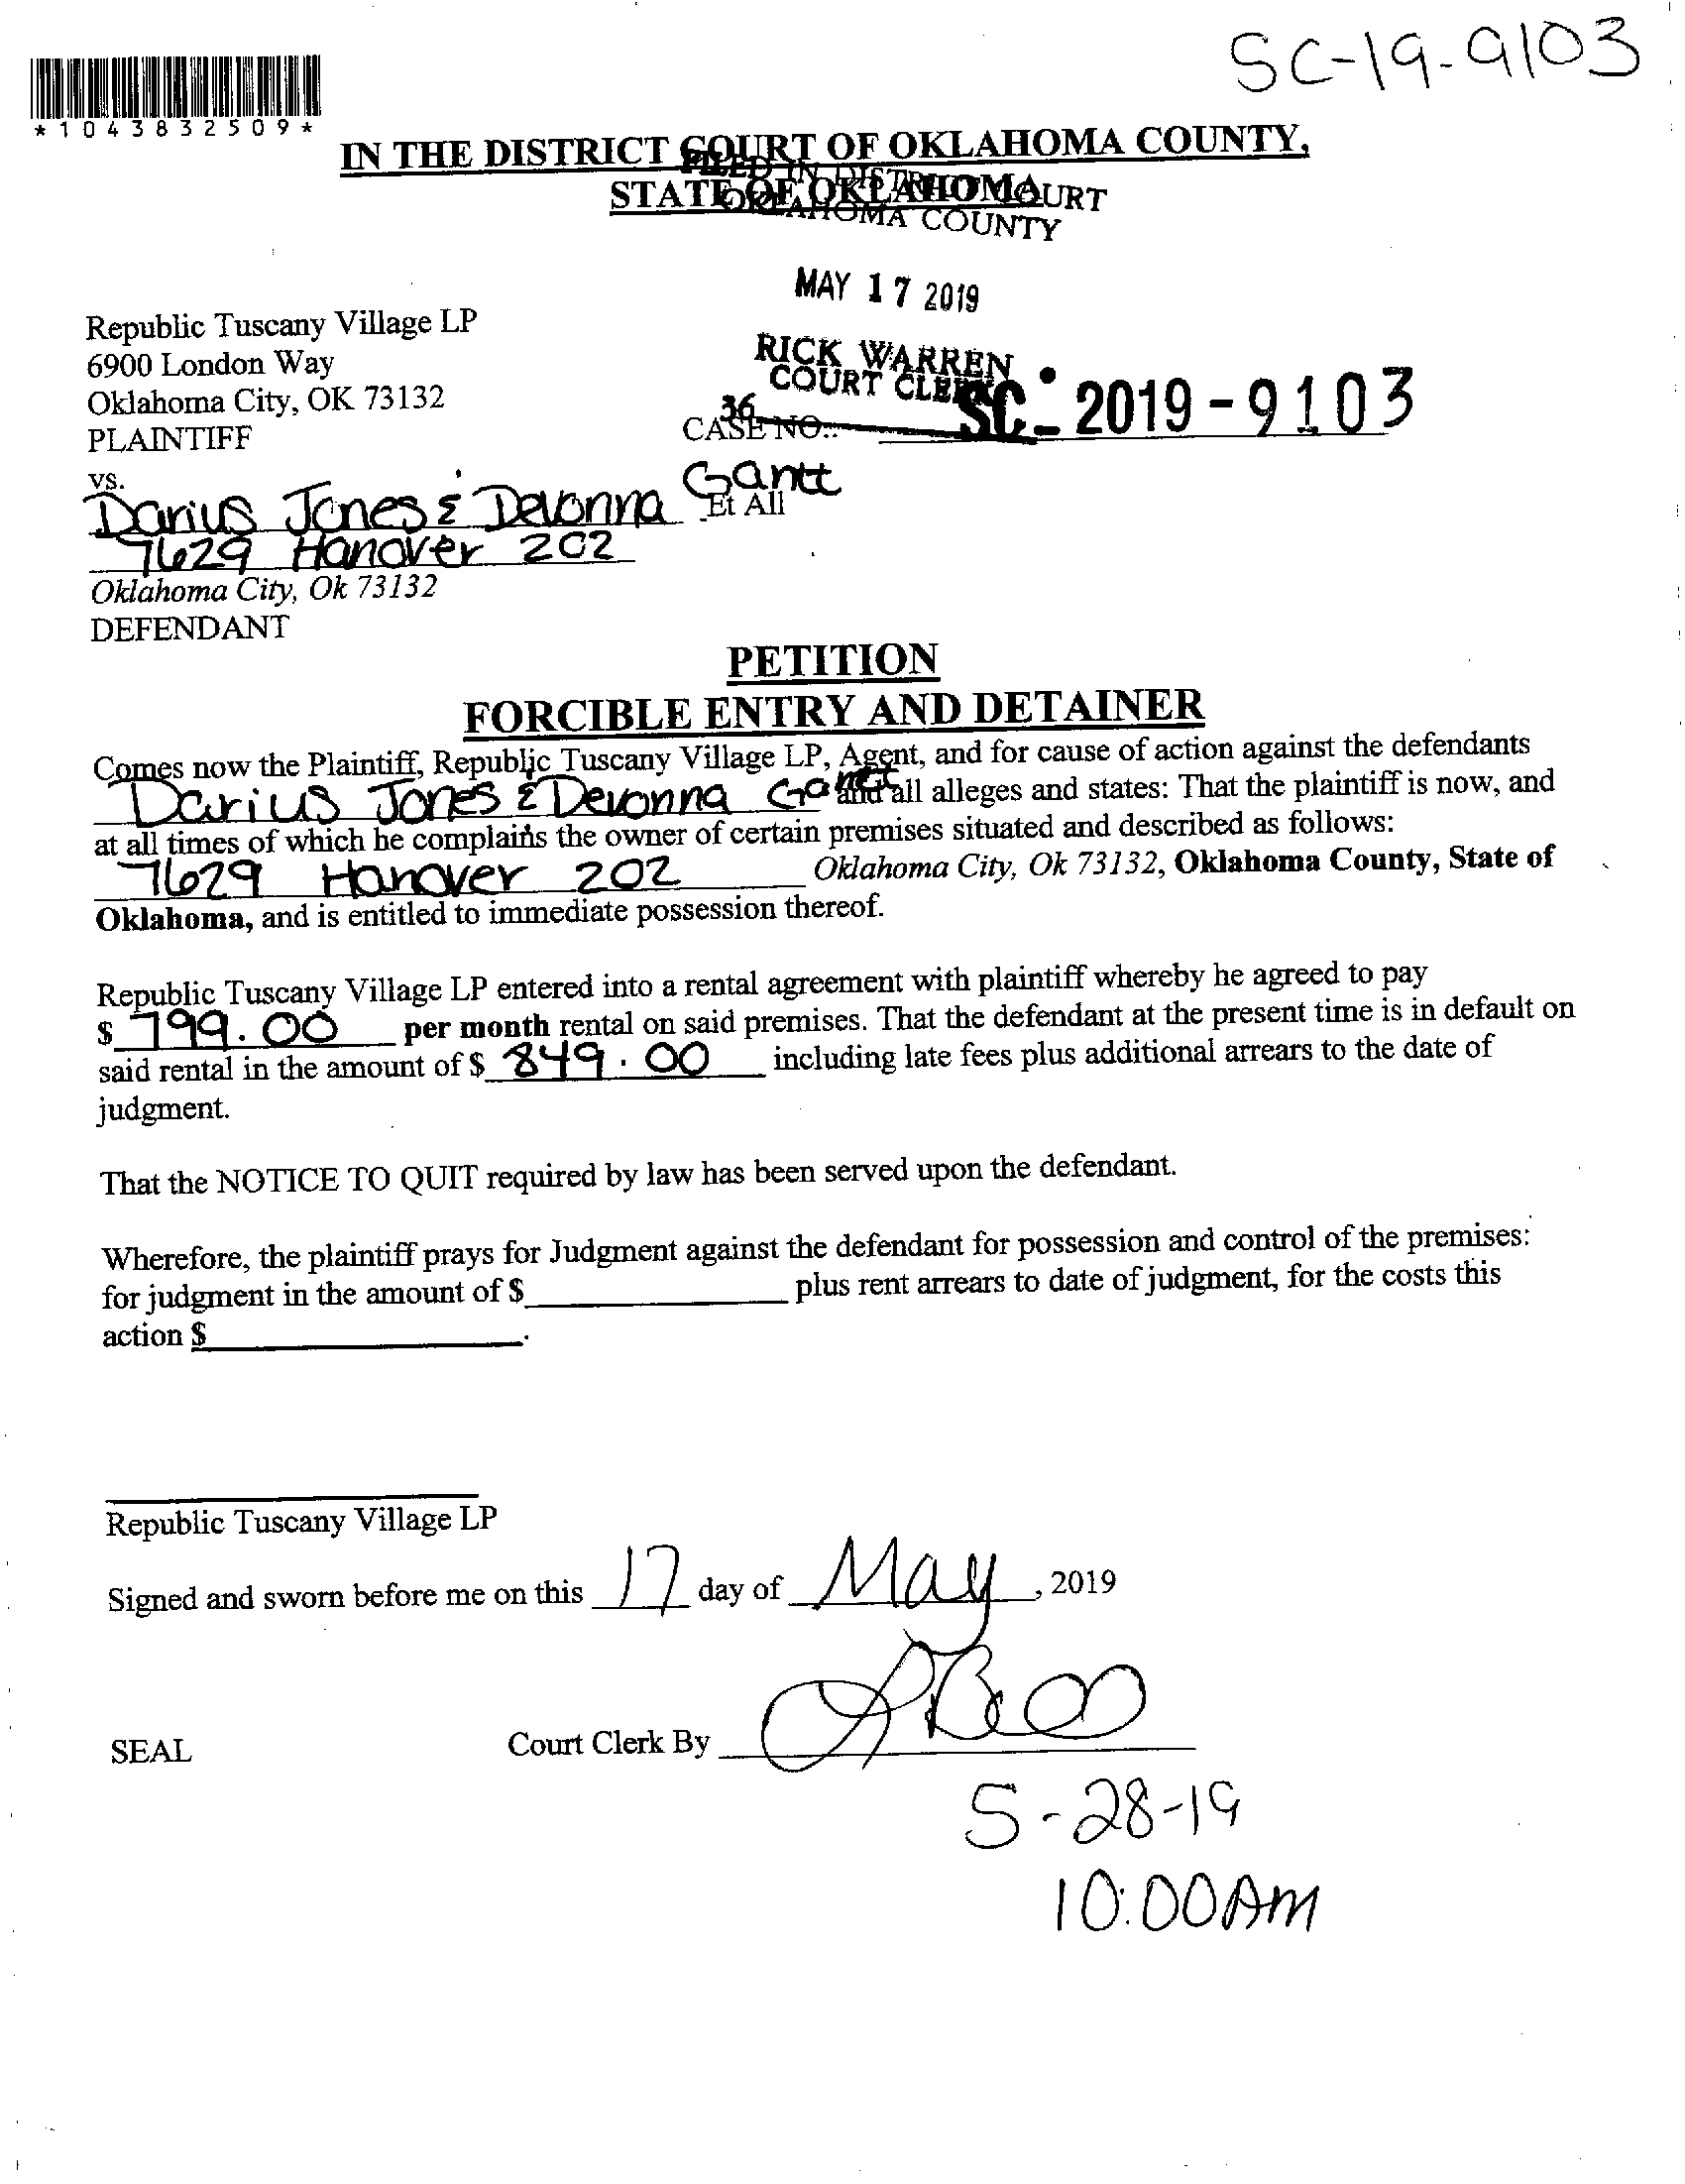 SC-19-9103
*1043832509*
IN THE DISTRICT COURT OF OKLAHOMA COUNTY,
STATE OF OKLAHOMA
FILED IN DISTRICT COURT
OKLAHOMA COUNTY
MAY 17 2019
RICK WARREN
COURT CLERK
36
Republic Tuscany Village LP
6900 London Way
Oklahoma City, OK 73132
PLAINTIFF
CASE NO.: SC-2019-9103
vs.
Darius Jones & Devonna Gantt Et All
7629 Hanover 202
Oklahoma City, Ok 73132
DEFENDANT
PETITION
FORCIBLE ENTRY AND DETAINER
Comes now the Plaintiff, Republic Tuscany Village LP, Agent, and for cause of action against the defendants
Darius Jones & Devonna Gantt and all alleges and states: That the plaintiff is now, and
at all times of which he complains the owner of certain premises situated and described as follows:
7629 Hanover 202 Oklahoma City, Ok 73132, Oklahoma County, State of
Oklahoma, and is entitled to immediate possession thereof.
Republic Tuscany Village LP entered into a rental agreement with plaintiff whereby he agreed to pay
$ 799.00 per month rental on said premises. That the defendant at the present time is in default on
said rental in the amount of $ 849.00 including late fees plus additional arrears to the date of
judgment.
That the NOTICE TO QUIT required by law has been served upon the defendant.
Wherefore, the plaintiff prays for Judgment against the defendant for possession and control of the premises:
for judgment in the amount of $ plus rent arrears to date of judgment, for the costs this
action $ .
Republic Tuscany Village LP
Signed and sworn before me on this 17 day of May, 2019
SEAL Court Clerk By
5-28-19
10:00AM